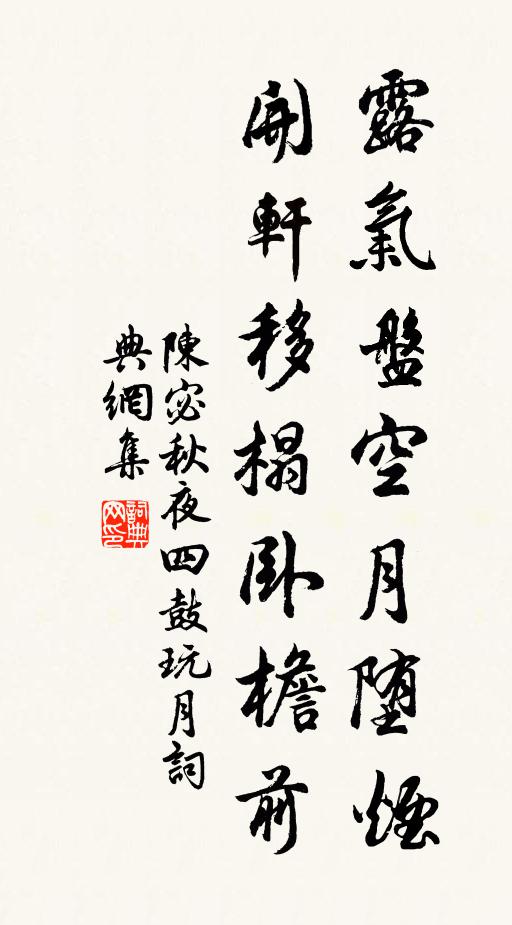 露氣盤空月堕煙
開軒移榻卧檐前
陳宓秋夜四鼓玩月詞
典網集
詞典网印